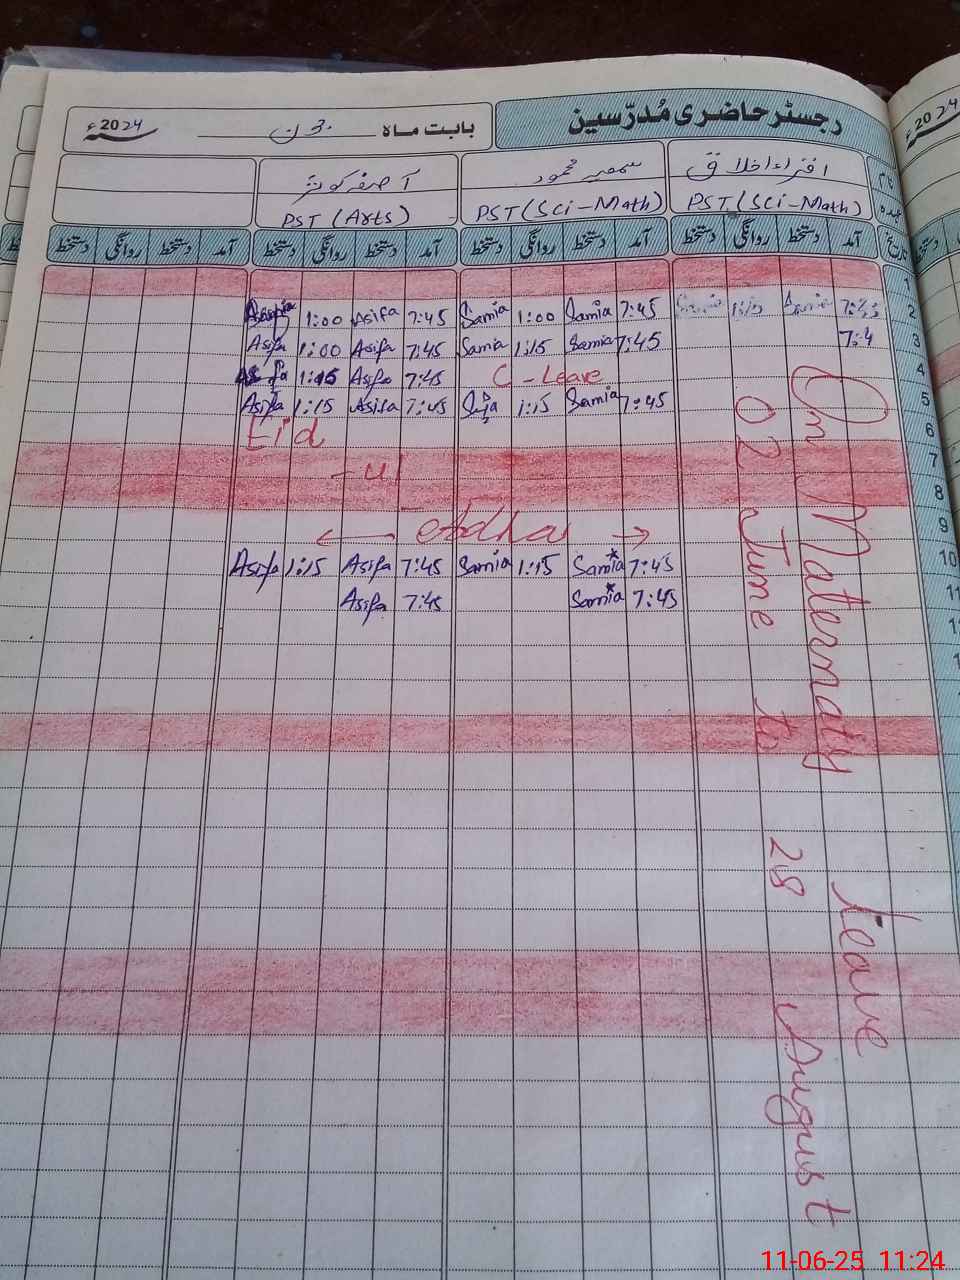 رجسٹر حاضری مُدرّسین
بابت ماہ جون 2024ء
نام اقراء اخلاق سمعیہ محمود آصفہ کوثر
عہدہ PST (Sci-Math) PST (Sci-Math) PST (Arts)
تاریخ آمد دستخط روانگی دستخط آمد دستخط روانگی دستخط آمد دستخط روانگی دستخط آمد دستخط روانگی دستخط
1
2 Samia 7:45 Samia 1:00 Samia 7:45 Asifa 1:00
3 7:4 7:45 Samia 1:15 Samia 7:45 Asifa 1:00 Asifa
4 C-Leave 7:45 Asifa 1:15
5 7:45 Samia 1:15 7:45 Asifa 1:15 Asifa
6 Eid
7 -ul
8
9 Adha
10 7:45 Samia 1:15 Samia 7:45 Asifa 1:15 Asifa
11 7:45 Samia 7:45 Asifa
On Maternaty Leave
02 June to 28 August
2024
11-06-25 11:24